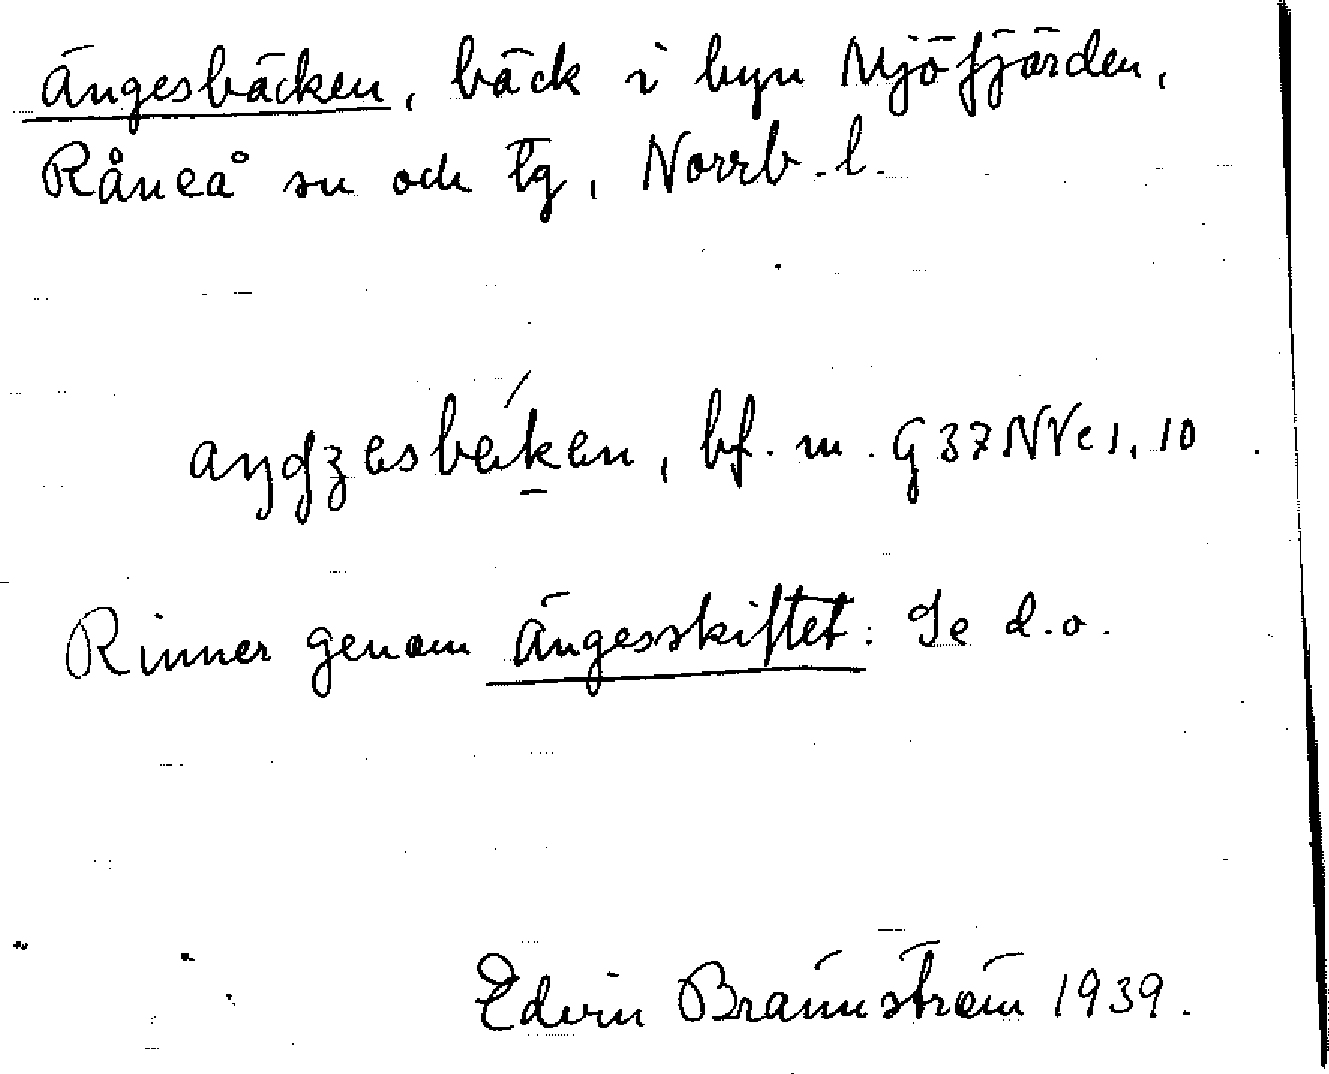 Ängesbäcken, bäck i byn Mjöfjärden,
Råneå sn och tg, Norrb. l.
aŋgʒesbeken, bf. m. G37NVc1, 10
Rinner genom Ängesskiftet: Se d.o.
Edvin Brännström 1939.